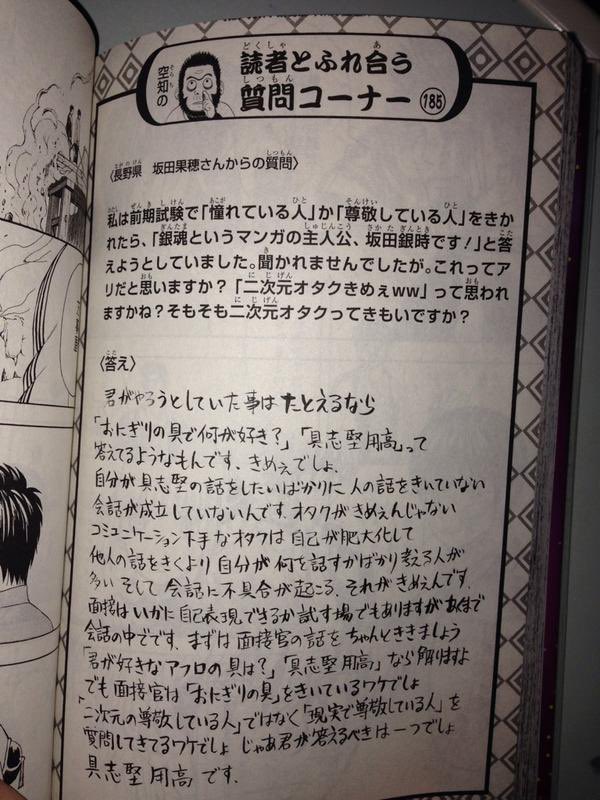 空知の
読者とふれ合う
質問コーナー 185
〈長野県 坂田果穂さんからの質問〉
私は前期試験で「憧れている人」か「尊敬している人」をきか
れたら、「銀魂というマンガの主人公、坂田銀時です!」と答
えようとしていました。聞かれませんでしたが。これってア
リだと思いますか?「二次元オタクきめぇww」って思われ
ますかね?そもそも二次元オタクってきもいですか?
〈答え〉
君がやろうとしていた事はたとえるなら
「おにぎりの具で何が好き?」「具志堅用高」って
答えてるようなもんです。きめぇでしょ、
自分が具志堅の話をしたいばかりに人の話をきいていない
会話が成立していないんです。オタクがきめぇんじゃない
コミュニケーション下手なオタクは自己が肥大化して
他人の話をきくより自分が何を話すかばかり考える人が
多い そして 会話に不具合が起こる、それがきめぇんです。
面接はいかに自己表現できるか試す場でもありますがあくまで
会話の中でです。まずは面接官の話をちゃんとききましょう
「君が好きなアフロの具は?」「具志堅用高」なら解りますよ
でも面接官は「おにぎりの具」をきいているワケでしょ
「二次元の尊敬している人」ではなく「現実で尊敬している人」を
質問してきてるワケでしょ じゃあ君が答えるべきは一つでしょ
具志堅用高です。